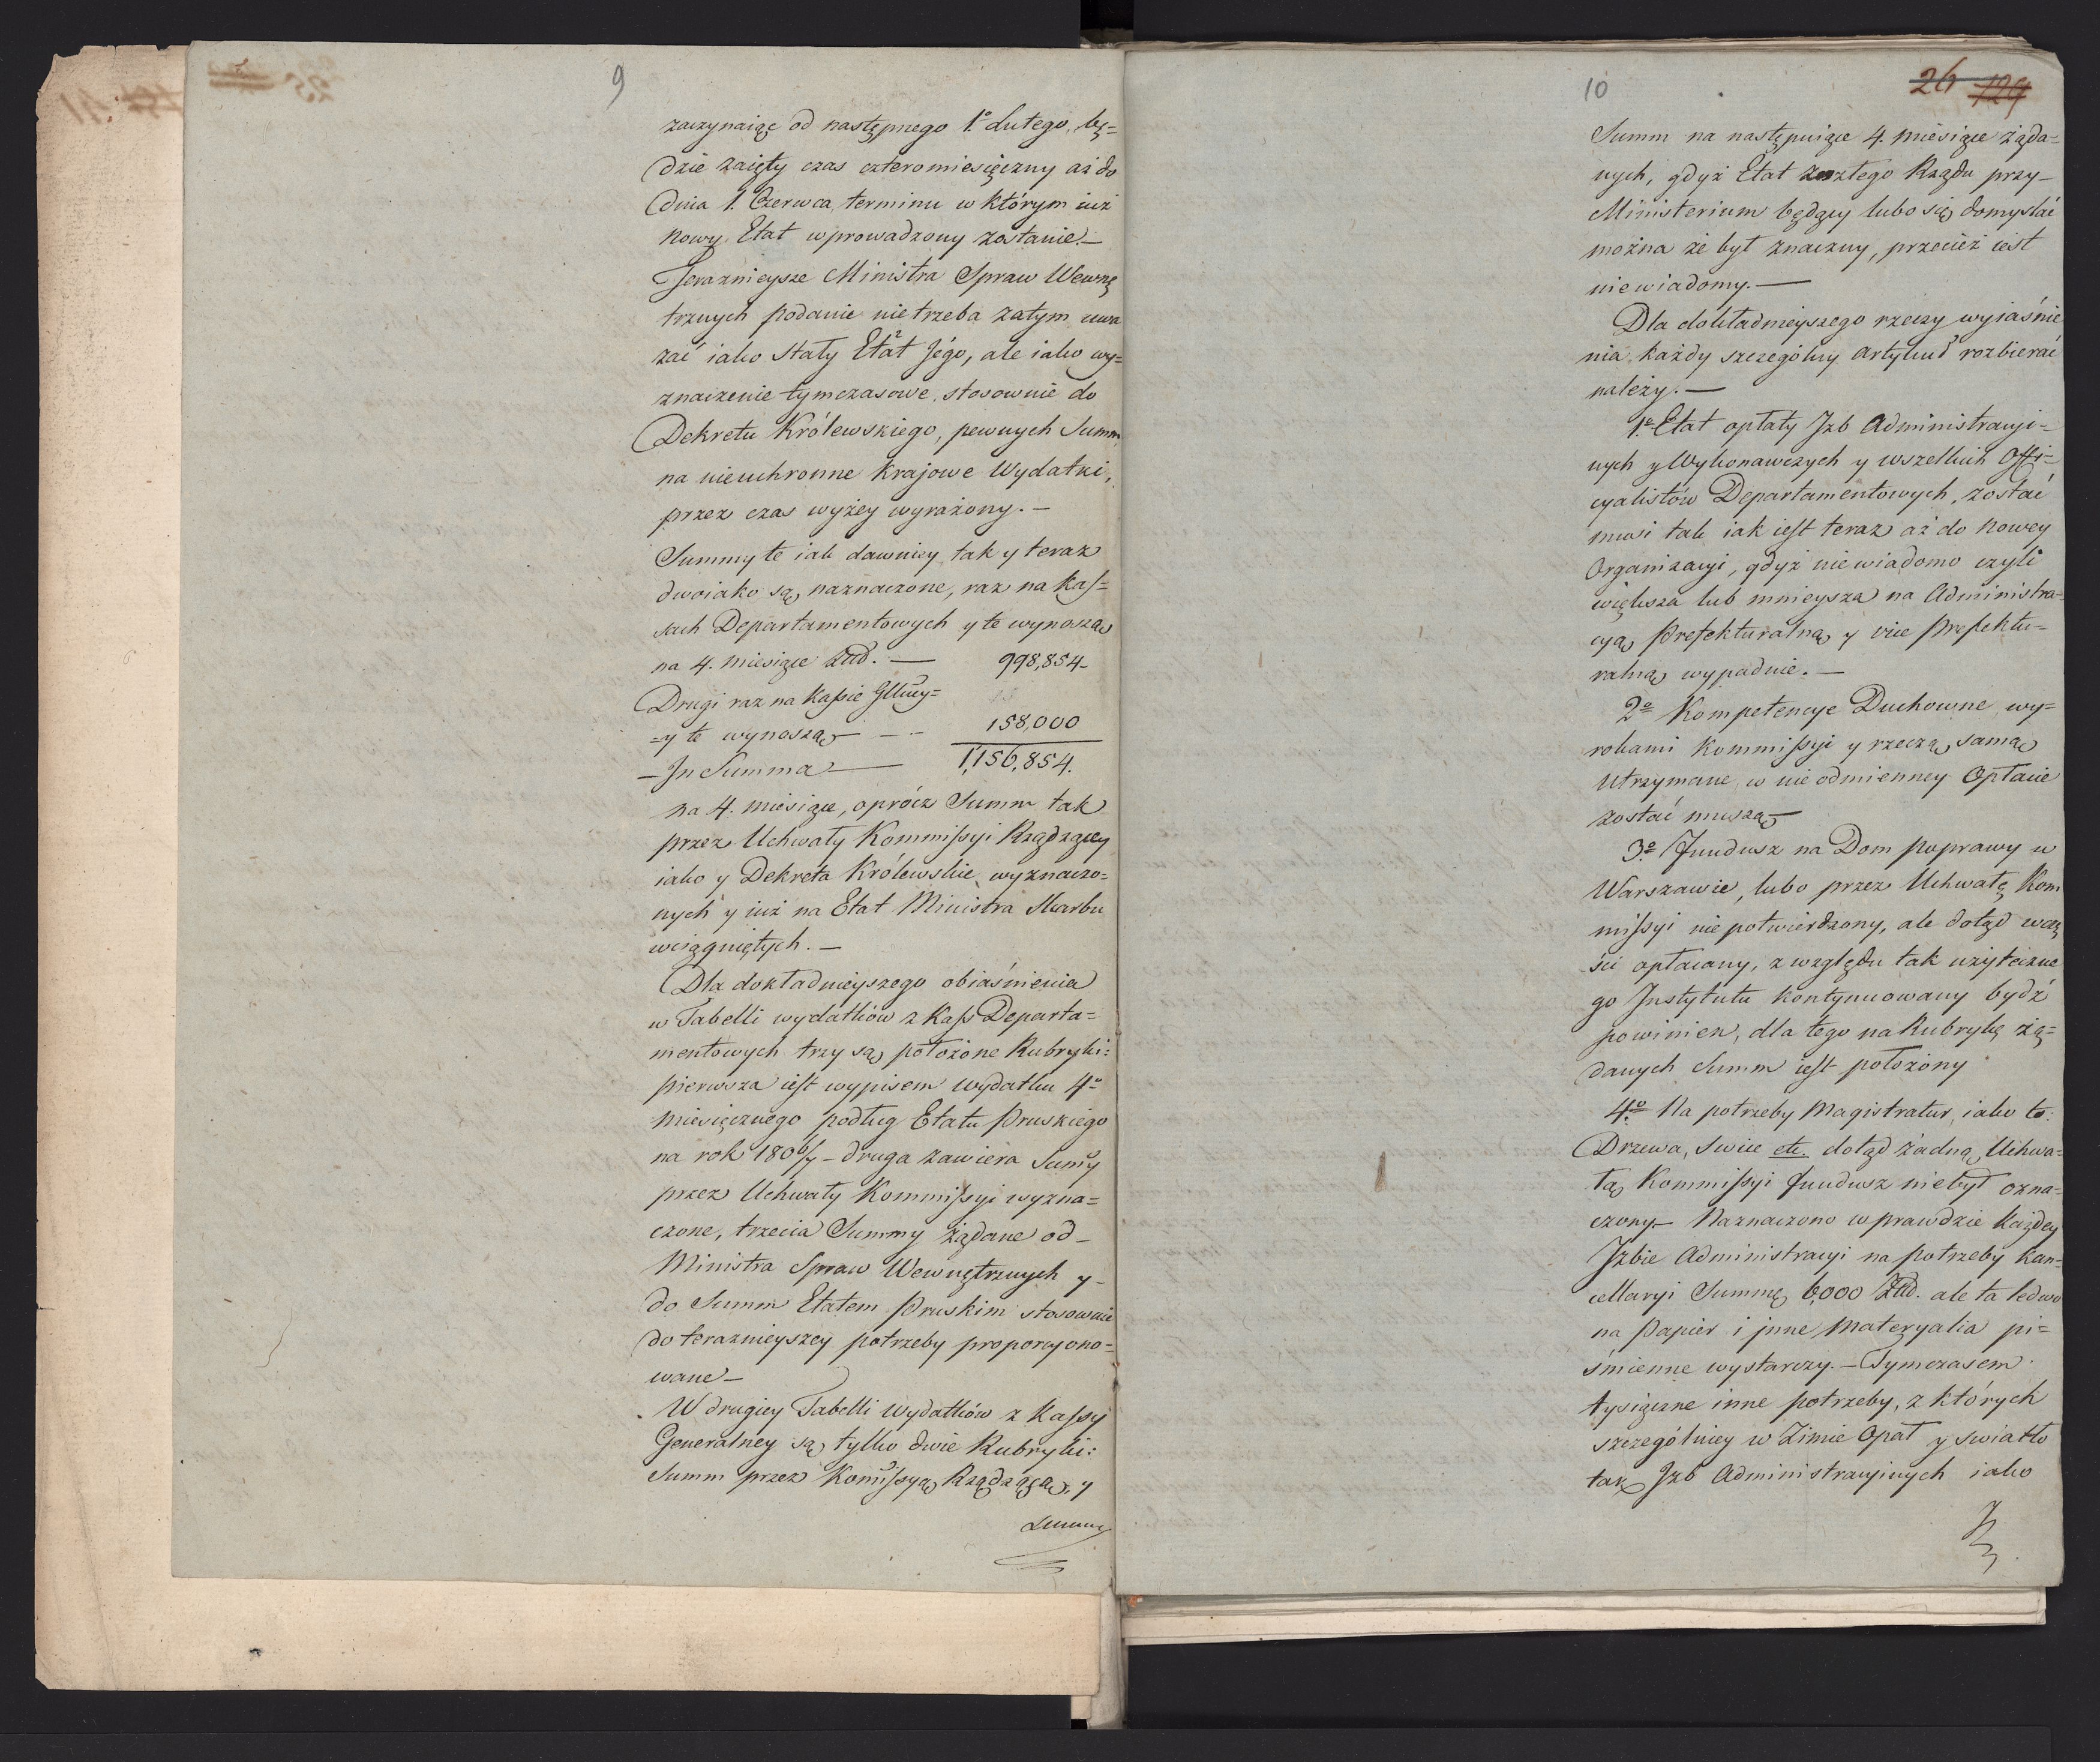 9
zaczynaiąc od następnego 1º Lutego, bę=
dzie zaięty czas czteromiesięczny aż do
dnia 1. Czerwca, terminu w którym iuż
nowy Etat wprowadzony zostanie.—
Teraznieysze Ministra Spraw Wewnę
trznych podanie nie trzeba zatym uwa
zać iako stały Etat Jégo, ale iako wy=
znaczenie tymczasowe, stosownie do
Dekretu Królewskiego, pewnych Summ,
na nieuchronne krajowe Wydatki,
przez czas wyżey wyrażony.—
Summy te iak dawniey tak y teraz
dwoiako są naznaczone, raz na Kas=
sach Departamentowych y te wynoszą
na 4. miesiące — 998,854-
Drugi raz na Kassie
=y te wynoszą — 158,000
— In Summa — 1,156,854.
na 4. miesiące, oprócz Summ tak
przez Uchwały Kommissyi Rządzącey
iako y Dekreta Królewskie, wyznaczo=
nych y iuż na Etat Ministra Skarbu
wciągniętych.—
Dla dokładnieyszego obiaśnienia
w Tabelli wydatków z Kass Departa=
mentowych trzy są położone Rubryki:
pierwsza iest wypisem wydatku 4º
miesięcznego podług Etatu Pruskiego
na rok 1806/7 - druga zawiera Sumy
przez Uchwały Kommissyi wyzna=
czone, trzecia Summy żądane od-
Ministra Spraw Wewnętrznych y-
do Summ Etatem Pruskim stosownie
do teraznieyszey potrzeby proporcyono=
wane—
W drugiey Tabelli wydatków z Kassy
Generalney są tylko dwie Rubryki:
Summ przez Komissyą Rządzącą, y
Summ
10 26 129
Summ na następuiące 4. miesiące żąda=
nych, gdyż Etat zeszłego Rządu przy-
Ministerium będący lubo się domyslać
można że był znaczny, przecież iest
niewiadomy.—
Dla dokładnieyszego rzeczy wyiaśnie
nia, każdy szczególny artykuł rozbierać
należy.—
1º Etat opłaty Jzb Administracyi=
nych y Wykonawczych y wszelkich Offi=
cyalistów Departamentowych, zostać
musi tak iak iest teraz aż do nowey
Organizacyi, gdyż niewiadomo czyli
większa lub mnieysza na Administra=
cyą Prefekturalną y vice Prefektu=
ralną wypadnie.—
2º Kompetencye Duchowne wy=
rokami Kommissyi y rzeczą samą
utrzymane, w nieodmienney Opłacie
zostać muszą—
3º Fundusz na Dom poprawy w
Warszawie, lubo przez Uchwałę Kom
missyi nie potwierdzony, ale dotąd wczę
ści opłacany, z względu tak użyteczne
go Instytutu kontynuowany bydź
powinien, dla tego na Rubrykę żą=
danych Summ iest położony
4º Na potrzeby Magistratur, iako to:
Drzewa, Swiec etc. dotąd żadną Uchwa=
łą Kommissyi Fundusz niebył ozna=
czony.— Naznaczono wprawdzie każdey
Izbie Administracyi na potrzeby kan=
cellaryi Summę 6,000 ale ta ledwo
na Papier i jnne Materyalia pi=
śmienne wystarczy.— Tymczasem
tysiączne inne potrzeby, z których
szczególniey w Zimie Opał y swiatło
tak Jzb Administracyinych iako